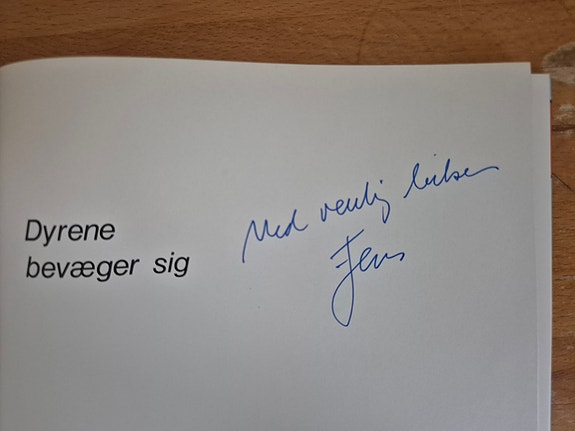 Dyrene
bevæger sig
Med venlig hilsen
Jens